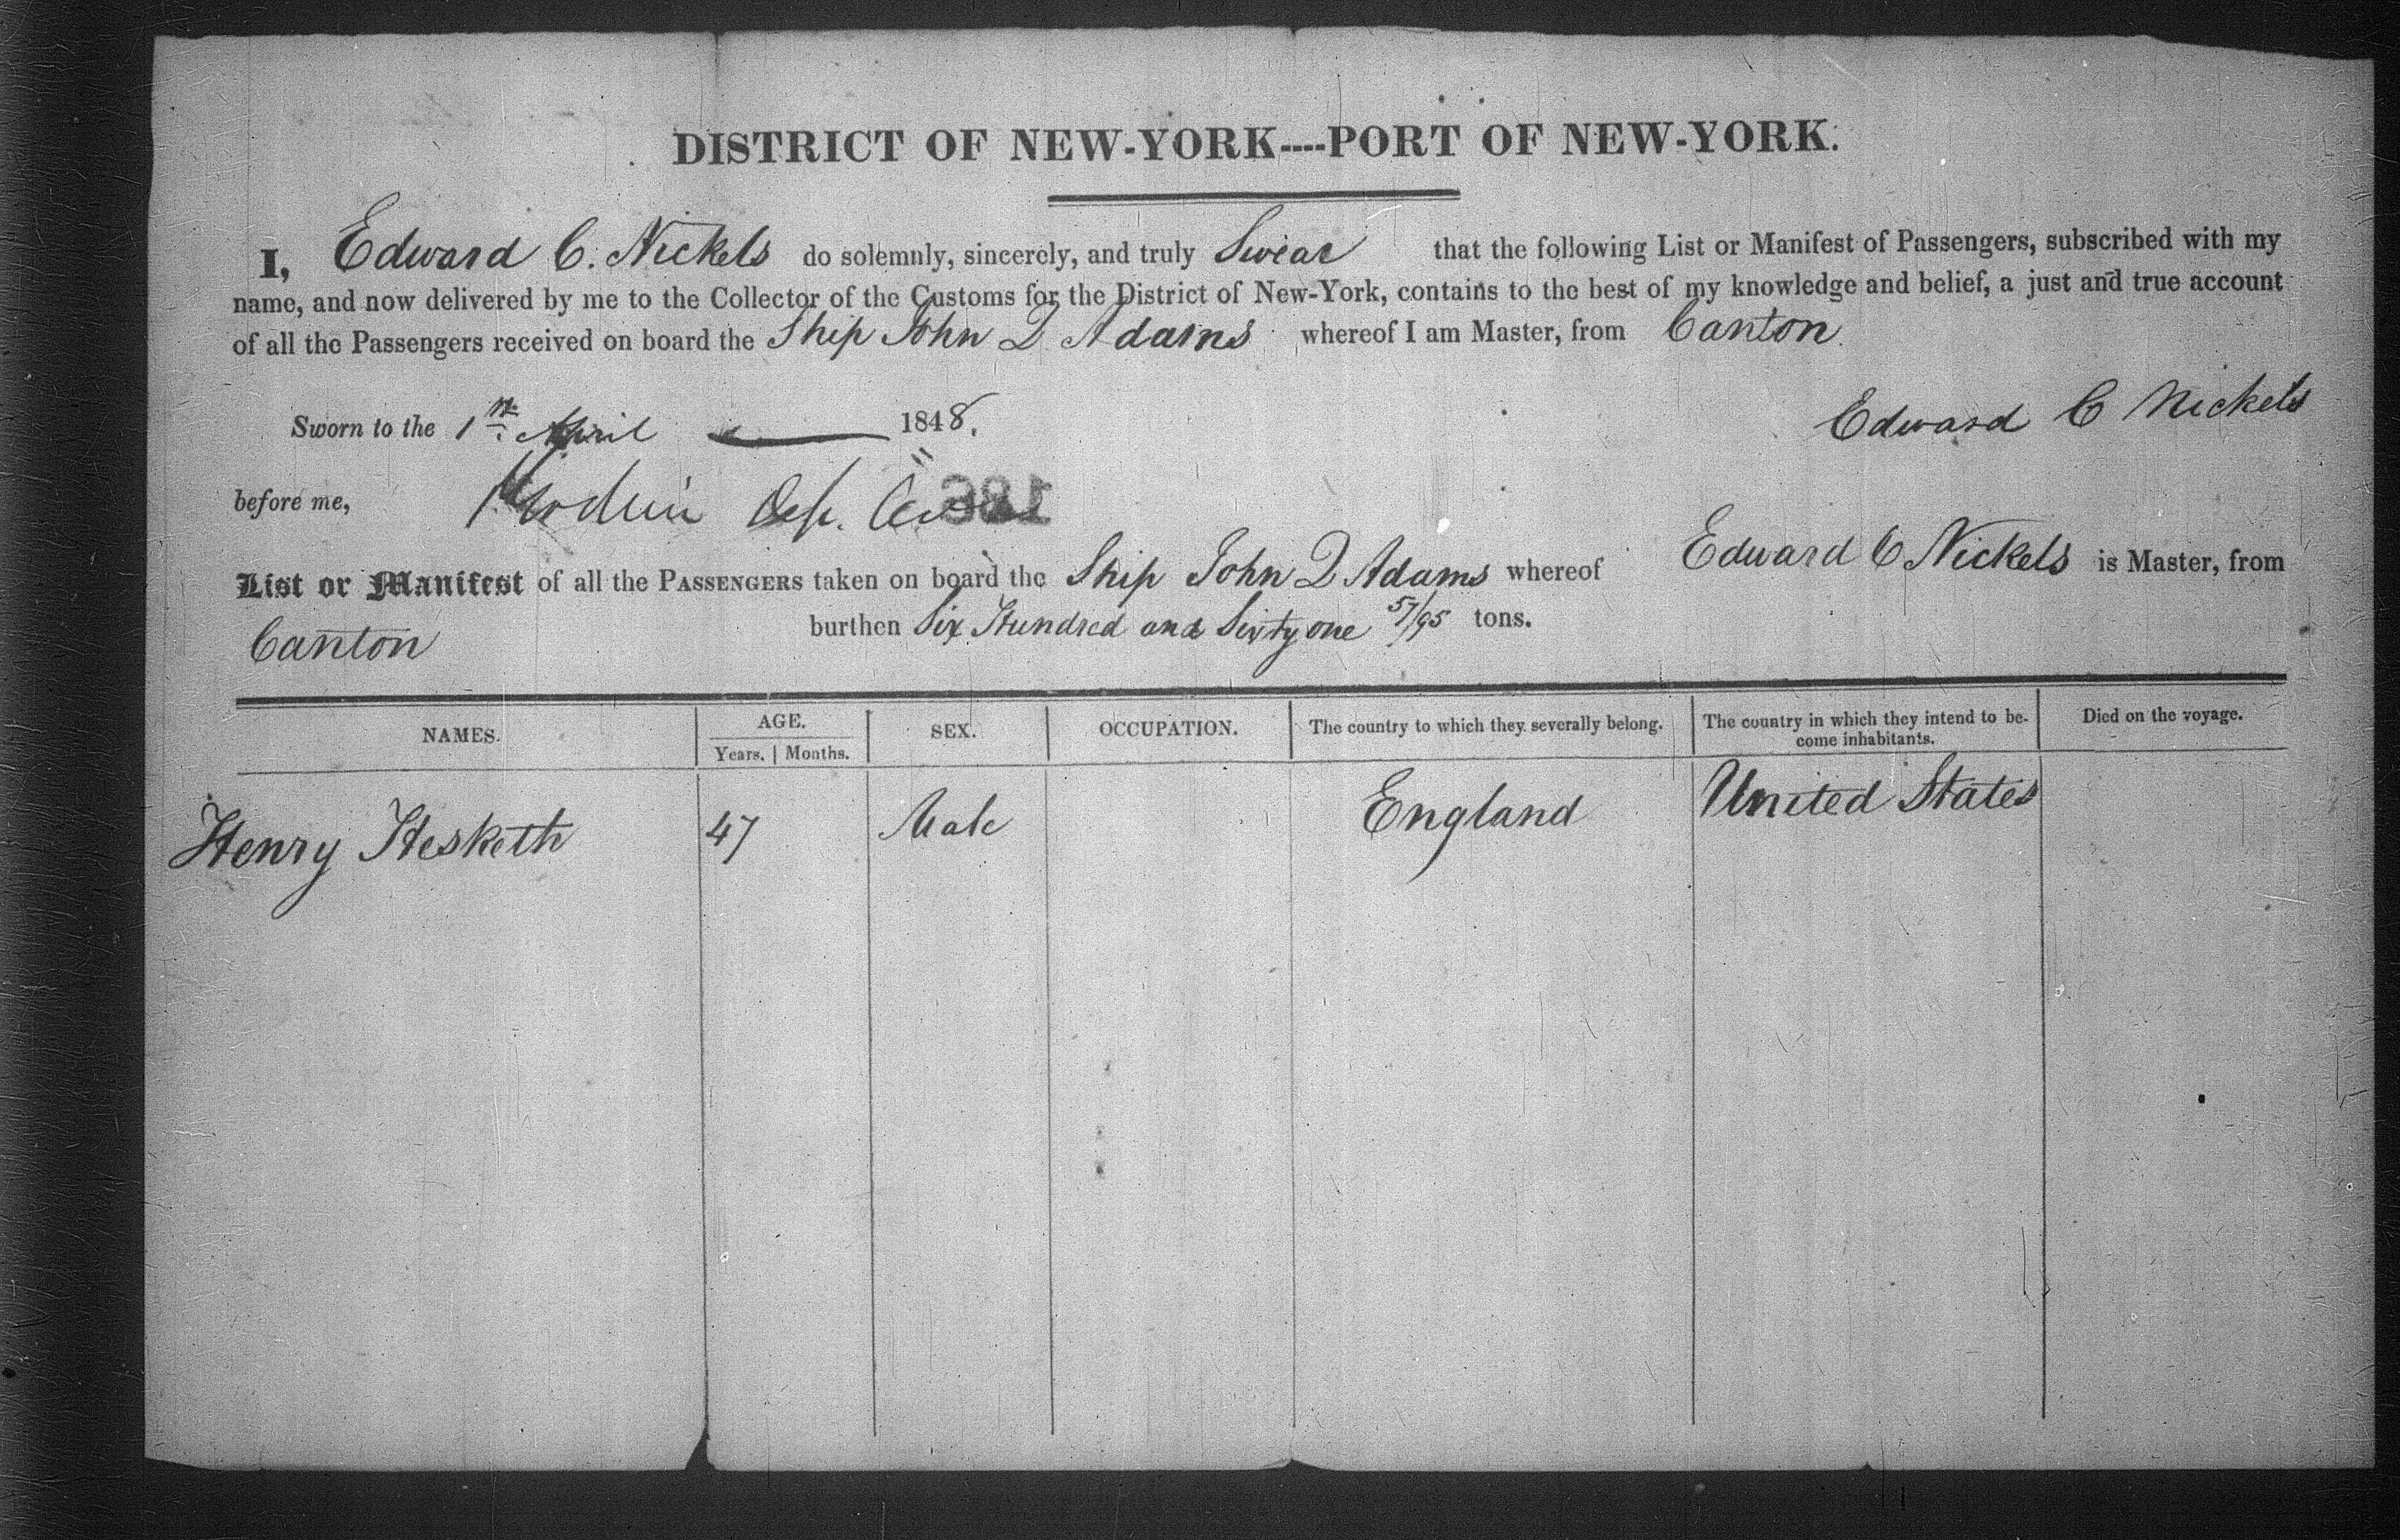 DISTRICT OF NEW-YORK----PORT OF NEW-YORK.
I, Edward C. Nickels do solemnly, sincerely, and truly Swear that the following List or Manifest of Passengers, subscribed with my
name, and now delivered by me to the Collector of the Customs for the District of New-York, contains to the best of my knowledge and belief, a just and true account
of all the Passengers received on board the Ship John Q Adams whereof I am Master, from Canton.
Sworn to the 1st April 1848.
Edward C Nickels
before me, Dep.
186
List or Manifest of all the PASSENGERS taken on board the Ship John Q Adams whereof Edward C Nickels is Master, from
Canton burthen Six Hundred and Sixty one 57/95 tons.
NAMES. AGE. SEX. OCCUPATION. The country to which they severally belong. The country in which they intend to be- Died on the voyage.
Years. Months. come inhabitants.
Henry Hesketh 47 Male England United States